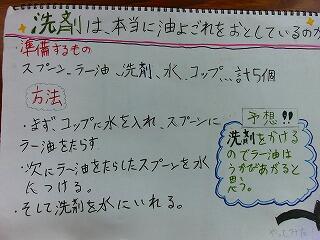 洗剤は、本当に油よごれをおとしているのか
準備するもの
スプーン、ラー油、洗剤、水、コップ、、、計5個
方法
・まずコップに水を入れ、スプーンに
ラー油をたらす
・次にラー油をたらしたスプーンを水
につける。
・そして洗剤を水にいれる。
予想!!
洗剤をかける
のでラー油は
うかびあがると
思う。
やってみた!